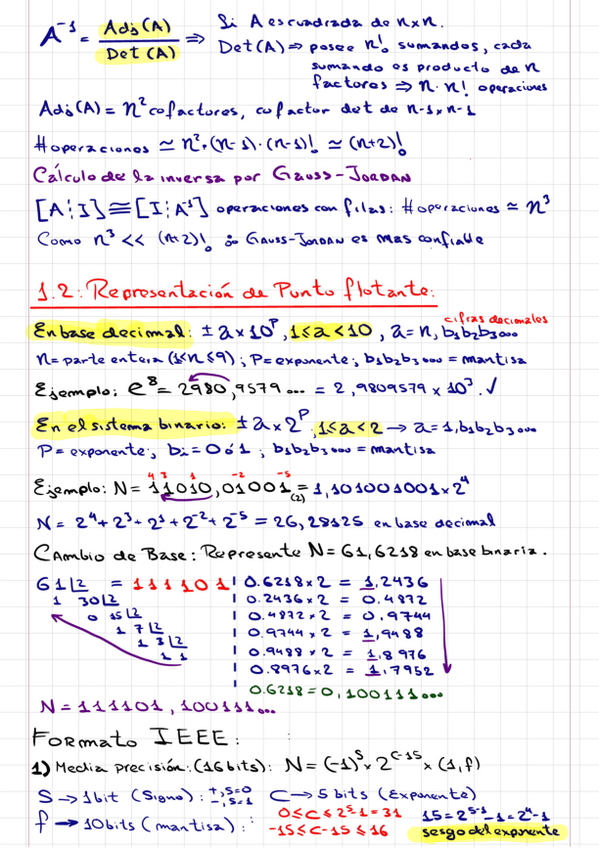 A⁻¹ = Adj(A) / Det(A) ⇒ Si A es cuadrada de n×n.
Det(A) ⇒ posee n! sumandos, cada
sumando es producto de n
factores ⇒ n·n! operaciones
Adj(A) = n² cofactores, cofactor det de n-1×n-1
#operaciones ≃ n²·(n-1)·(n-1)! ≃ (n+2)!
Cálculo de la inversa por Gauss-Jordan
[A¦I] ≅ [I¦A⁻¹] operaciones con filas: #operaciones ≃ n³
Como n³ << (n+2)! ∴ Gauss-Jordan es mas confiable
1.2: Representación de Punto flotante:
cifras decimales
En base decimal: ± a×10^P, 1≤a<10, a = n,b₁b₂b₃...
n = parte entera (1≤n≤9); P = exponente; b₁b₂b₃... = mantisa
Ejemplo: e⁸ = 2980,9579... = 2,9809579 × 10³. ✓
En el sistema binario: ± a × 2^P, 1≤a<2 → a = 1,b₁b₂b₃...
P = exponente; bi = 0 ó 1; b₁b₂b₃... = mantisa
4 3 1 -2 -5
Ejemplo: N = 11010,01001₍₂₎ = 1,101001001×2⁴
N = 2⁴ + 2³ + 2¹ + 2⁻² + 2⁻⁵ = 26,28125 en base decimal
Cambio de Base: Represente N = 61,6218 en base binaria.
61 |2 = 111101 | 0.6218×2 = 1,2436
1 30 |2 | 0.2436×2 = 0.4872
0 15 |2 | 0.4872×2 = 0.9744
1 7 |2 | 0.9744×2 = 1,9488
1 3 |2 | 0.9488×2 = 1,8976
1 1 | 0.8976×2 = 1,7952
0.6218 = 0,100111...
N = 111101,100111...
Formato IEEE:
1) Media precisión: (16bits): N = (-1)^S × 2^(C-15) × (1,f)
S → 1bit (Signo): +, S=0 -, S=1 C → 5 bits (Exponente)
f → 10bits (mantisa): 0 ≤ C ≤ 2⁵-1 = 31 15 = 2⁵⁻¹-1 = 2⁴-1
-15 ≤ C-15 ≤ 16 sesgo del exponente